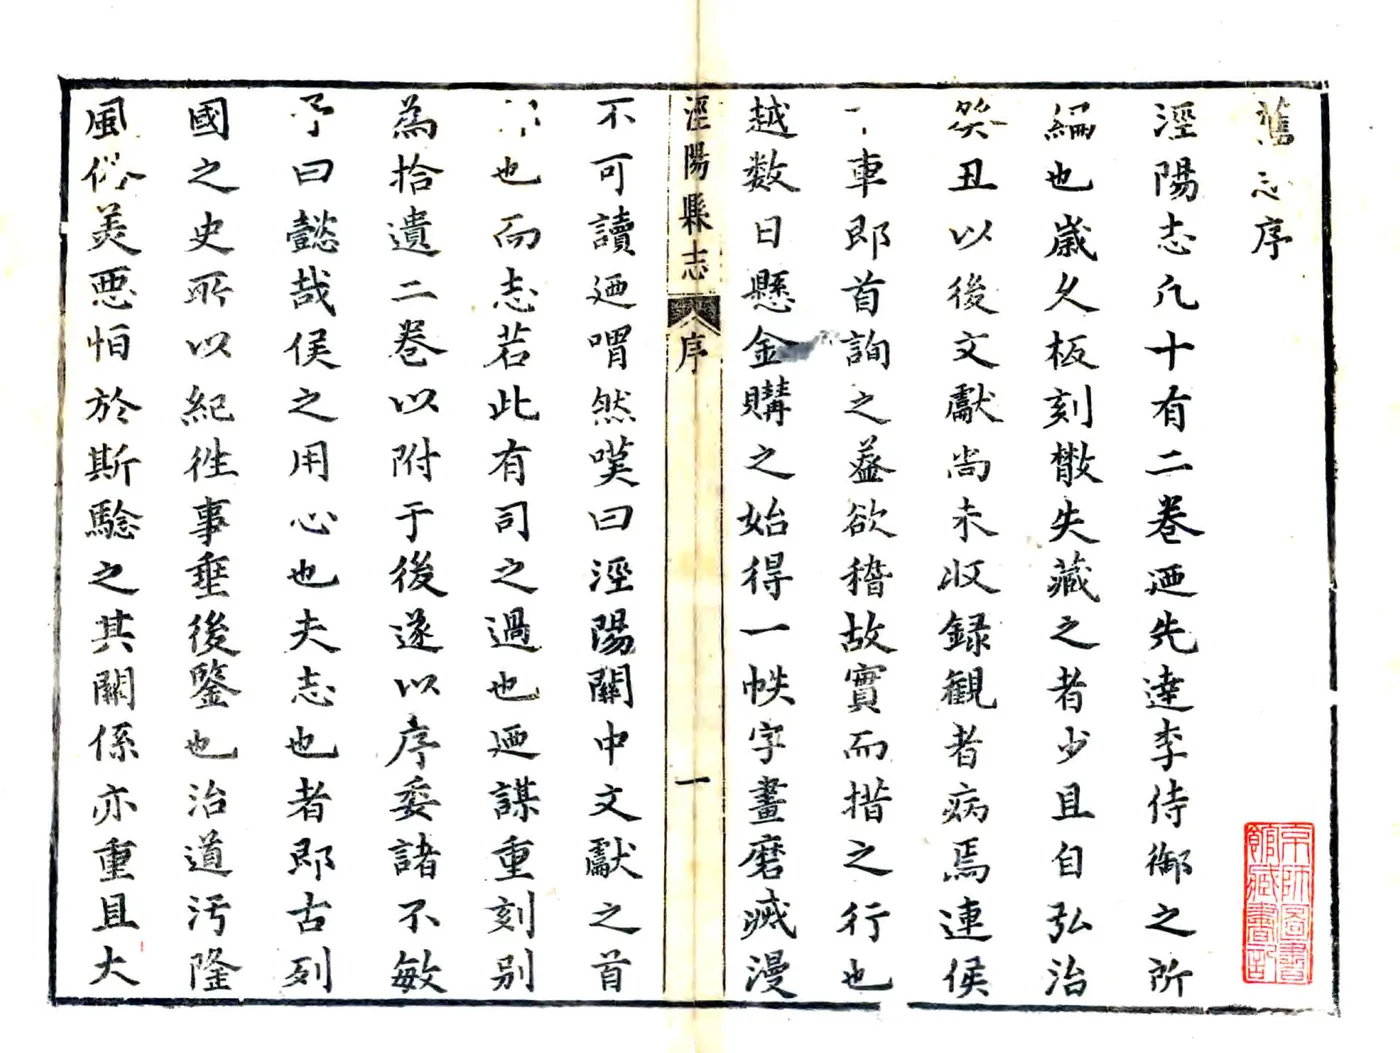 舊志序
涇陽志凡十有二卷廼先達李侍御之所
編也歲久板刻散失藏之者少且自弘治
癸丑以後文獻尚未收録觀者病焉連侯
下車即首詢之葢欲稽故實而措之行也
越数日懸金購之始得一帙字畫磨滅漫
涇陽縣志
序
一
不可讀廼喟然嘆曰涇陽關中文獻之首
也而志若此有司之過也廼謀重刻别
為拾遺二卷以附于後遂以序委諸不敏
予曰懿哉侯之用心也夫志也者即古列
國之史所以紀徃事垂後鑒也治道汚隆
風俗美惡怕於斯騐之其關係亦重且大
京師圖書
館藏書記